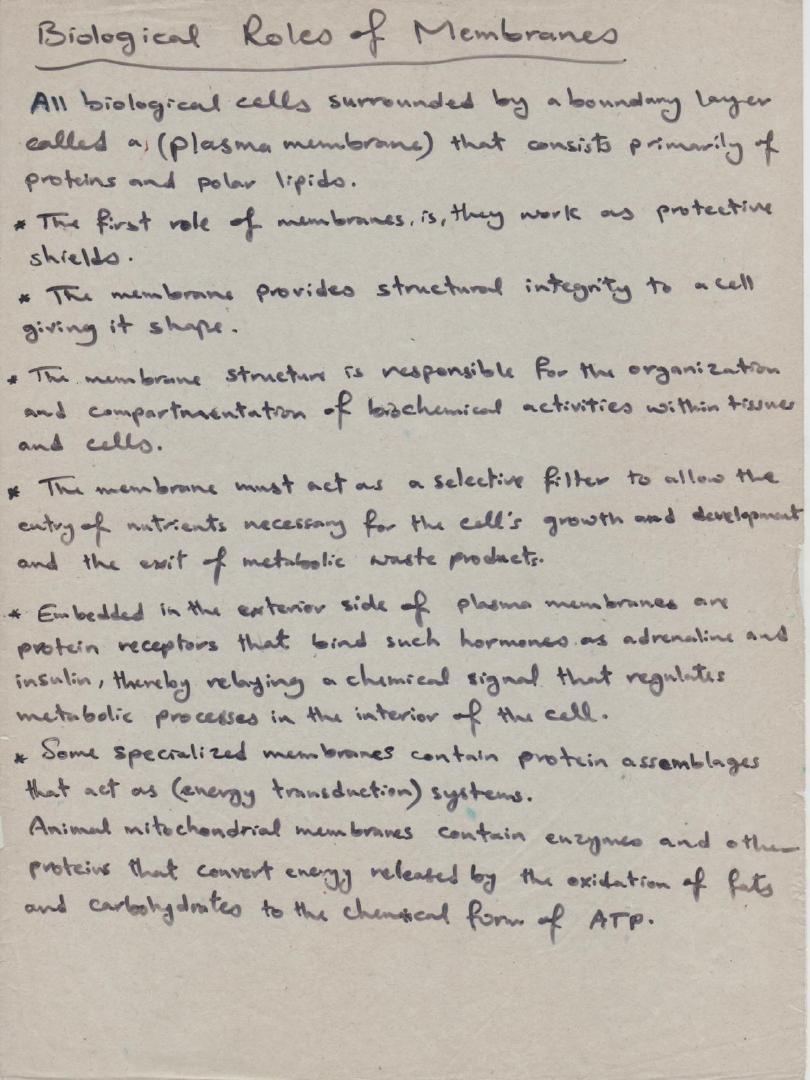 Biological Roles of Membranes
All biological cells surrounded by a boundary layer
called a, (plasma membrane) that consists primarily of
proteins and polar lipids.
* The first role of membranes, is, they work as protective
shields.
* The membrane provides structural integrity to a cell
giving it shape.
* The membrane structure is responsible for the organization
and compartmentation of biochemical activities within tissues
and cells.
* The membrane must act as a selective filter to allow the
entry of nutrients necessary for the cell's growth and development
and the exit of metabolic waste products.
* Embedded in the exterior side of plasma membranes are
protein receptors that bind such hormones as adrenaline and
insulin, thereby relaying a chemical signal that regulates
metabolic processes in the interior of the cell.
* Some specialized membranes contain protein assemblages
that act as (energy transduction) systems.
Animal mitochondrial membranes contain enzymes and other
proteins that convert energy released by the oxidation of fats
and carbohydrates to the chemical form of ATP.